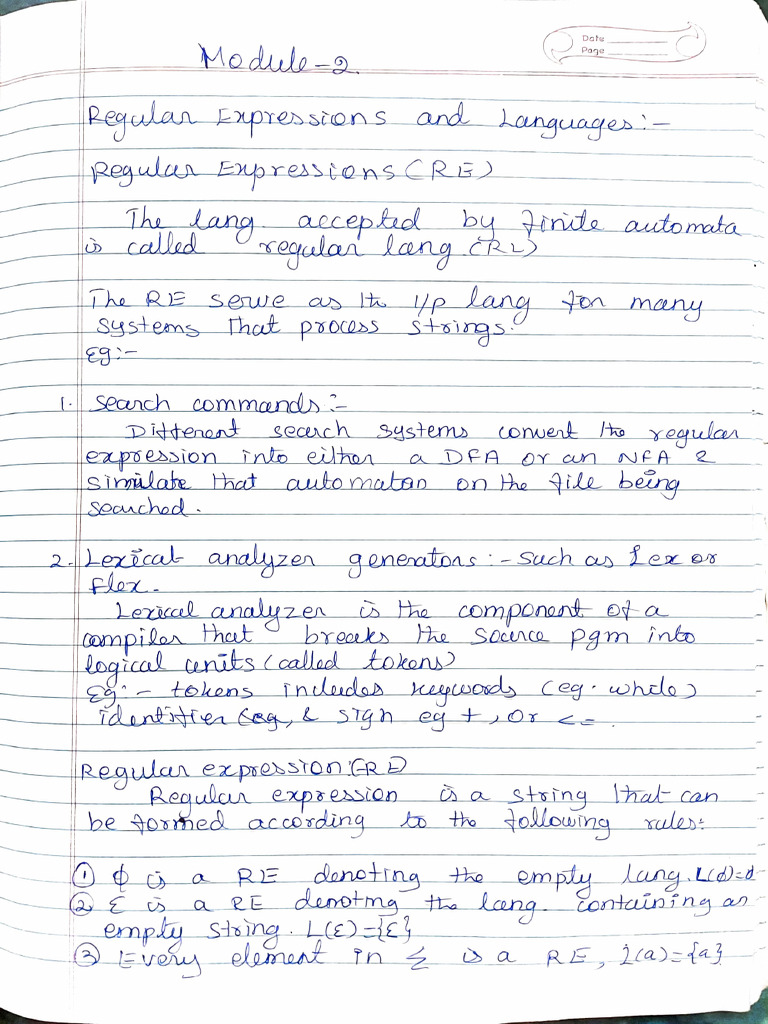 Date
Page
Module-2.
Regular Expressions and Languages:-
Regular Expressions (RE)
The lang. accepted by finite automata
is called regular lang (RL)
The RE serve as the i/p lang for many
systems that process strings.
Eg:-
1. Search commands:-
Different search systems convert the regular
expression into either a DFA or an NFA &
simulate that automaton on the file being
searched.
2. Lexical analyzer generators:- Such as Lex or
Flex.
Lexical analyzer is the component of a
compiler that breaks the source pgm into
logical units (called tokens)
Eg:- tokens includes keywords (eg. while)
identifier & sign eg +, or <=.
Regular expression: (RE)
Regular expression is a string that can
be formed according to the following rules:
① ϕ is a RE denoting the empty lang. L(ϕ)=ϕ
② ε is a RE denoting the lang. containing an
empty string. L(ε)={ε}
③ Every element in Σ is a RE, L(a)={a}